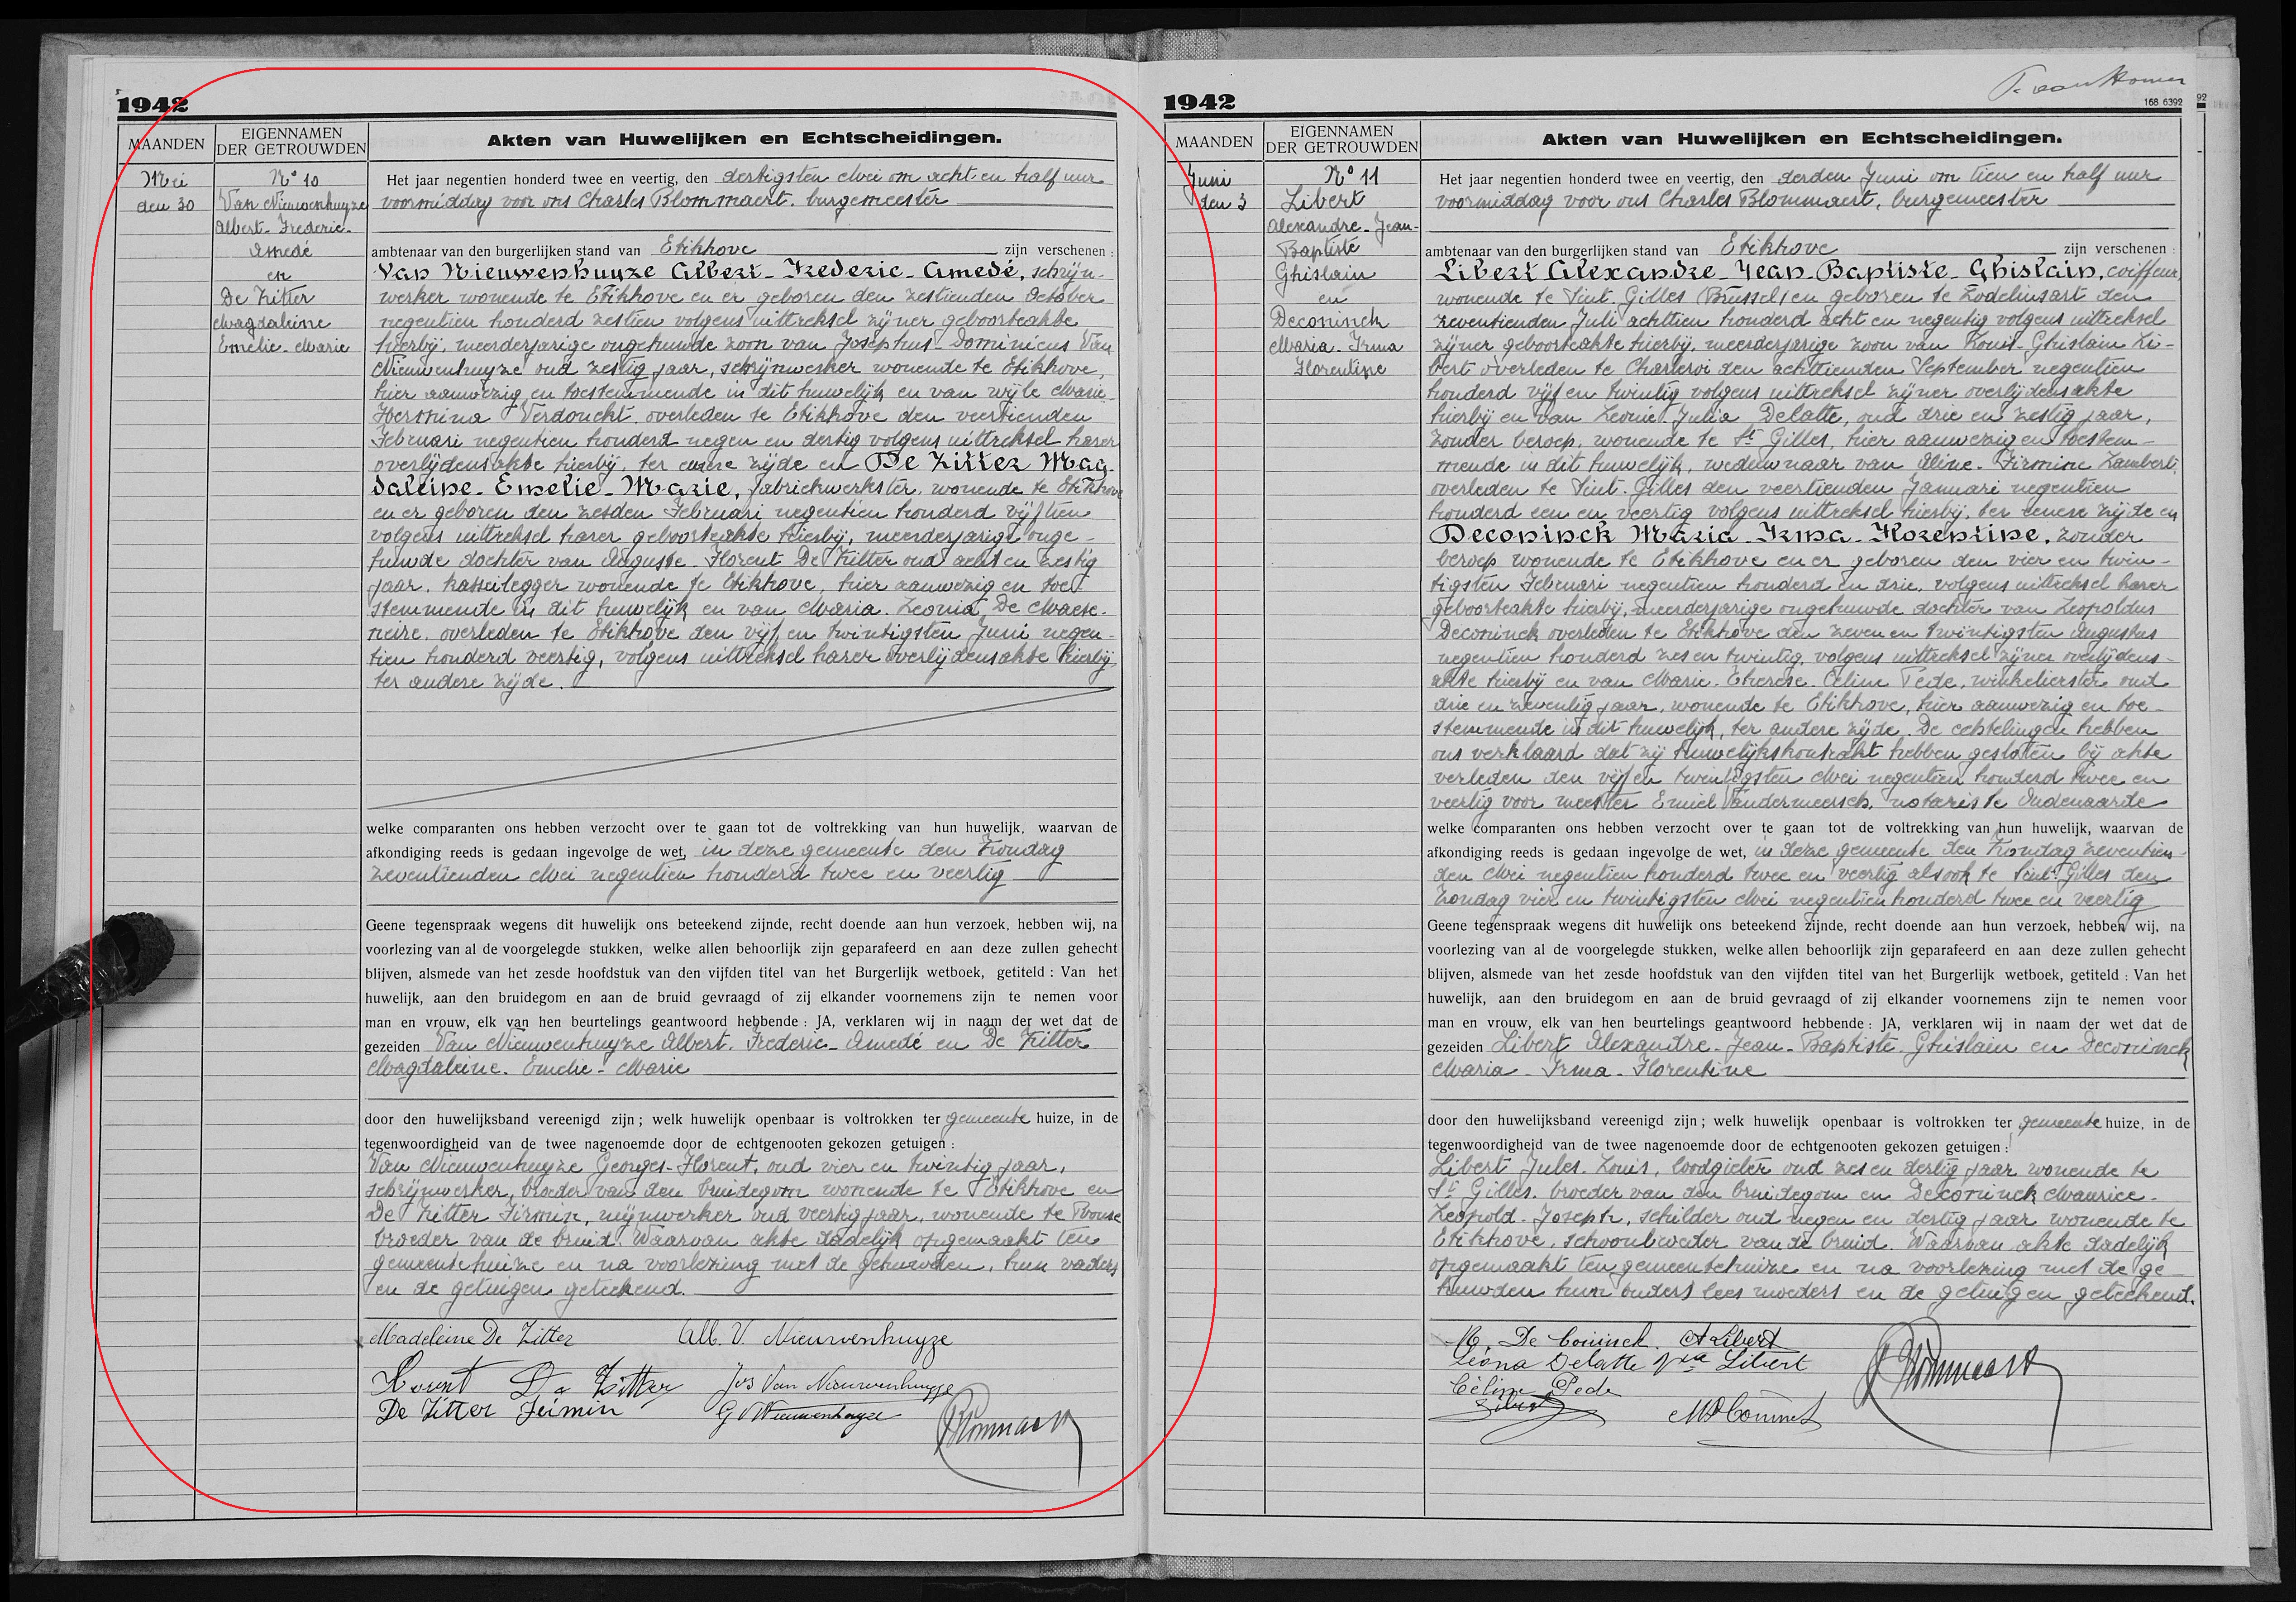 1942
MAANDEN
EIGENNAMEN
DER GETROUWDEN
Akten van Huwelijken en Echtscheidingen.
Mei
den 30
N° 10
Van Nieuwenhuyze
Albert-Frederic-
Amedé
en
De Zitter
Magdaleine
Emelie-Marie
Het jaar negentien honderd twee en veertig, den dertigsten Mei om acht en half uur
voormiddag voor ons Charles Blommaert, burgemeester
ambtenaar van den burgerlijken stand van Etikhove zijn verschenen :
Van Nieuwenhuyze Albert-Frederic-Amedé, schrijn-
werker wonende te Etikhove en er geboren den zestienden October
negentien honderd zestien volgens uittreksel zijner geboorteakte
hierbij, meerderjarige ongehuwde zoon van Josephus-Dominicus Van
Nieuwenhuyze oud zestig jaar, schrijnwerker wonende te Etikhove,
hier aanwezig en toestemmende in dit huwelijk en van wijle Marie
Hermina Verdonckt overleden te Etikhove den veertienden
Februari negentien honderd negen en dertig volgens uittreksel harer
overlijdensakte hierbij, ter eenere zijde en De Zitter Mag-
daleine-Emelie-Marie, fabriekwerkster, wonende te Etikhove
en er geboren den zesden Februari negentien honderd vijftien
volgens uittreksel harer geboorteakte hierbij, meerderjarige onge-
huwde dochter van Auguste-Florent De Zitter oud acht en zestig
jaar, kasseilegger wonende te Etikhove, hier aanwezig en toe-
stemmende in dit huwelijk en van Maria-Leonia De Maese-
neire, overleden te Etikhove den vijf en twintigsten Juni negen-
tien honderd veertig, volgens uittreksel harer overlijdensakte hierbij
ter andere zijde.
welke comparanten ons hebben verzocht over te gaan tot de voltrekking van hun huwelijk, waarvan de
afkondiging reeds is gedaan ingevolge de wet, in deze gemeente den Zondag
zeventienden Mei negentien honderd twee en veertig
Geene tegenspraak wegens dit huwelijk ons beteekend zijnde, recht doende aan hun verzoek, hebben wij, na
voorlezing van al de voorgelegde stukken, welke allen behoorlijk zijn geparafeerd en aan deze zullen gehecht
blijven, alsmede van het zesde hoofdstuk van den vijfden titel van het Burgerlijk wetboek, getiteld : Van het
huwelijk, aan den bruidegom en aan de bruid gevraagd of zij elkander voornemens zijn te nemen voor
man en vrouw, elk van hen beurtelings geantwoord hebbende : JA, verklaren wij in naam der wet dat de
gezeiden Van Nieuwenhuyze Albert-Frederic-Amedé en De Zitter
Magdaleine-Emelie-Marie
door den huwelijksband vereenigd zijn ; welk huwelijk openbaar is voltrokken ter gemeente huize, in de
tegenwoordigheid van de twee nagenoemde door de echtgenooten gekozen getuigen :
Van Nieuwenhuyze Georges-Florent, oud vier en twintig jaar,
schrijnwerker, broeder van den bruidegom wonende te Etikhove en
De Zitter Firmin, mijnwerker oud veertig jaar, wonende te Ronse
broeder van de bruid. Waarvan akte dadelijk opgemaakt ten
gemeentehuize en na voorlezing met de gehuwden, hun vaders
en de getuigen geteekend.
Madeleine De Zitter Alb. V. Nieuwenhuyze
Florent De Zitter Jos Van Nieuwenhuyze
De Zitter Firmin G V Nieuwenhuyze
Blommaert
1942
168 6392
92
MAANDEN
EIGENNAMEN
DER GETROUWDEN
Akten van Huwelijken en Echtscheidingen.
Juni
den 3
N° 11
Libert
Alexandre-Jean-
Baptiste
Ghislain
en
Deconinck
Maria-Irma
Florentine
Het jaar negentien honderd twee en veertig, den derden Juni om tien en half uur
voormiddag voor ons Charles Blommaert, burgemeester
ambtenaar van den burgerlijken stand van Etikhove zijn verschenen :
Libert Alexandre-Jean-Baptiste-Ghislain, coiffeur,
wonende te Sint-Gilles (Brussel) en geboren te Lodelinsart den
zeventienden Juli achttien honderd acht en negentig volgens uittreksel
zijner geboorteakte hierbij, meerderjarige zoon van Louis-Ghislain Li-
bert overleden te Charleroi den achttienden September negentien
honderd vijf en twintig volgens uittreksel zijner overlijdensakte
hierbij en van Leonie-Julia Delatte, oud drie en zestig jaar,
zonder beroep, wonende te St Gilles, hier aanwezig en toestem-
mende in dit huwelijk, weduwnaar van Aline-Firmine Lambert,
overleden te Sint-Gilles den veertienden Januari negentien
honderd een en veertig volgens uittreksel hierbij, ter eenere zijde en
Deconinck Maria-Irma-Florentine, zonder
beroep wonende te Etikhove en er geboren den vier en twin-
tigsten Februari negentien honderd en drie, volgens uittreksel harer
geboorteakte hierbij, meerderjarige ongehuwde dochter van Leopoldus
Deconinck overleden te Etikhove den zeven en twintigsten Augustus
negentien honderd zes en twintig, volgens uittreksel zijner overlijdens-
akte hierbij en van Marie-Therese-Celine Pede, winkelierster oud
drie en zeventig jaar, wonende te Etikhove, hier aanwezig en toe-
stemmende in dit huwelijk, ter andere zijde. De echtelingen hebben
ons verklaard dat zij huwelijkskontrakt hebben gesloten bij akte
verleden den vijf en twintigsten Mei negentien honderd twee en
veertig voor meester Emiel Vandermeersch, notaris te Oudenaarde
welke comparanten ons hebben verzocht over te gaan tot de voltrekking van hun huwelijk, waarvan de
afkondiging reeds is gedaan ingevolge de wet, in deze gemeente den Zondag zeventien-
den Mei negentien honderd twee en veertig alsook te Sint-Gilles den
Zondag vier en twintigsten Mei negentien honderd twee en veertig
Geene tegenspraak wegens dit huwelijk ons beteekend zijnde, recht doende aan hun verzoek, hebben wij, na
voorlezing van al de voorgelegde stukken, welke allen behoorlijk zijn geparafeerd en aan deze zullen gehecht
blijven, alsmede van het zesde hoofdstuk van den vijfden titel van het Burgerlijk wetboek, getiteld : Van het
huwelijk, aan den bruidegom en aan de bruid gevraagd of zij elkander voornemens zijn te nemen voor
man en vrouw, elk van hen beurtelings geantwoord hebbende : JA, verklaren wij in naam der wet dat de
gezeiden Libert Alexandre-Jean-Baptiste-Ghislain en Deconinck
Maria-Irma-Florentine
door den huwelijksband vereenigd zijn ; welk huwelijk openbaar is voltrokken ter gemeente huize, in de
tegenwoordigheid van de twee nagenoemde door de echtgenooten gekozen getuigen :
Libert Jules-Louis, loodgieter oud zes en dertig jaar wonende te
St Gilles, broeder van den bruidegom en Deconinck Maurice-
Leopold-Joseph, schilder oud negen en dertig jaar wonende te
Etikhove, schoonbroeder van de bruid. Waarvan akte dadelijk
opgemaakt ten gemeentehuize en na voorlezing met de ge-
huwden hun ouders lees moeders en de getuigen geteekend.
M. De Coninck A Libert
Léona Delatte Vve Libert
Céline Pede
Libert M DeConinck
Blommaert